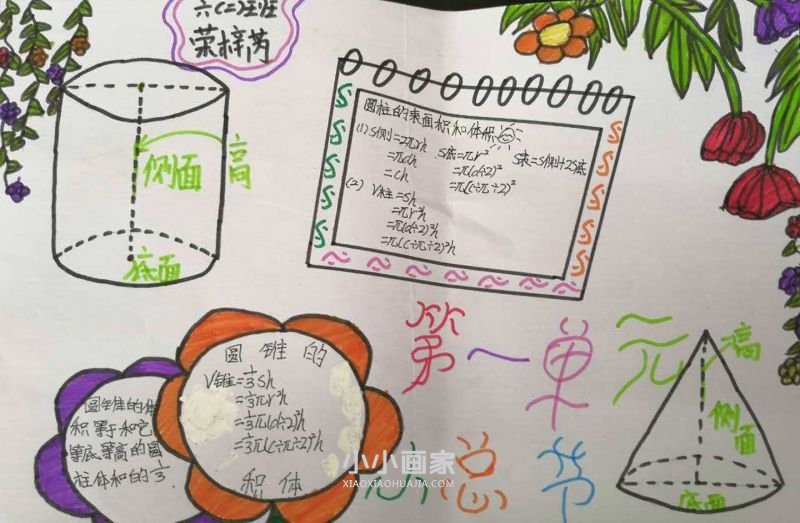 六(二)班
荣梓芮
高
侧面
底面
圆柱的表面积和体积
(1) S侧=2πrh S底=πr² S表=S侧+2S底
=πdh =π(d÷2)²
=ch =π(c÷π÷2)²
(2) V柱=Sh
=πr²h
=π(d÷2)²h
=π(c÷π÷2)²h
圆锥的
V锥=⅓Sh
=⅓πr²h
=⅓π(d÷2)²h
=⅓π(c÷π÷2)²h
积体
圆锥的体
积等于和它
等底等高的圆
柱体积的⅓.
第一单元
小总节
高
侧面
底面
小小画家
XIAOXIAOHUAJIA.COM